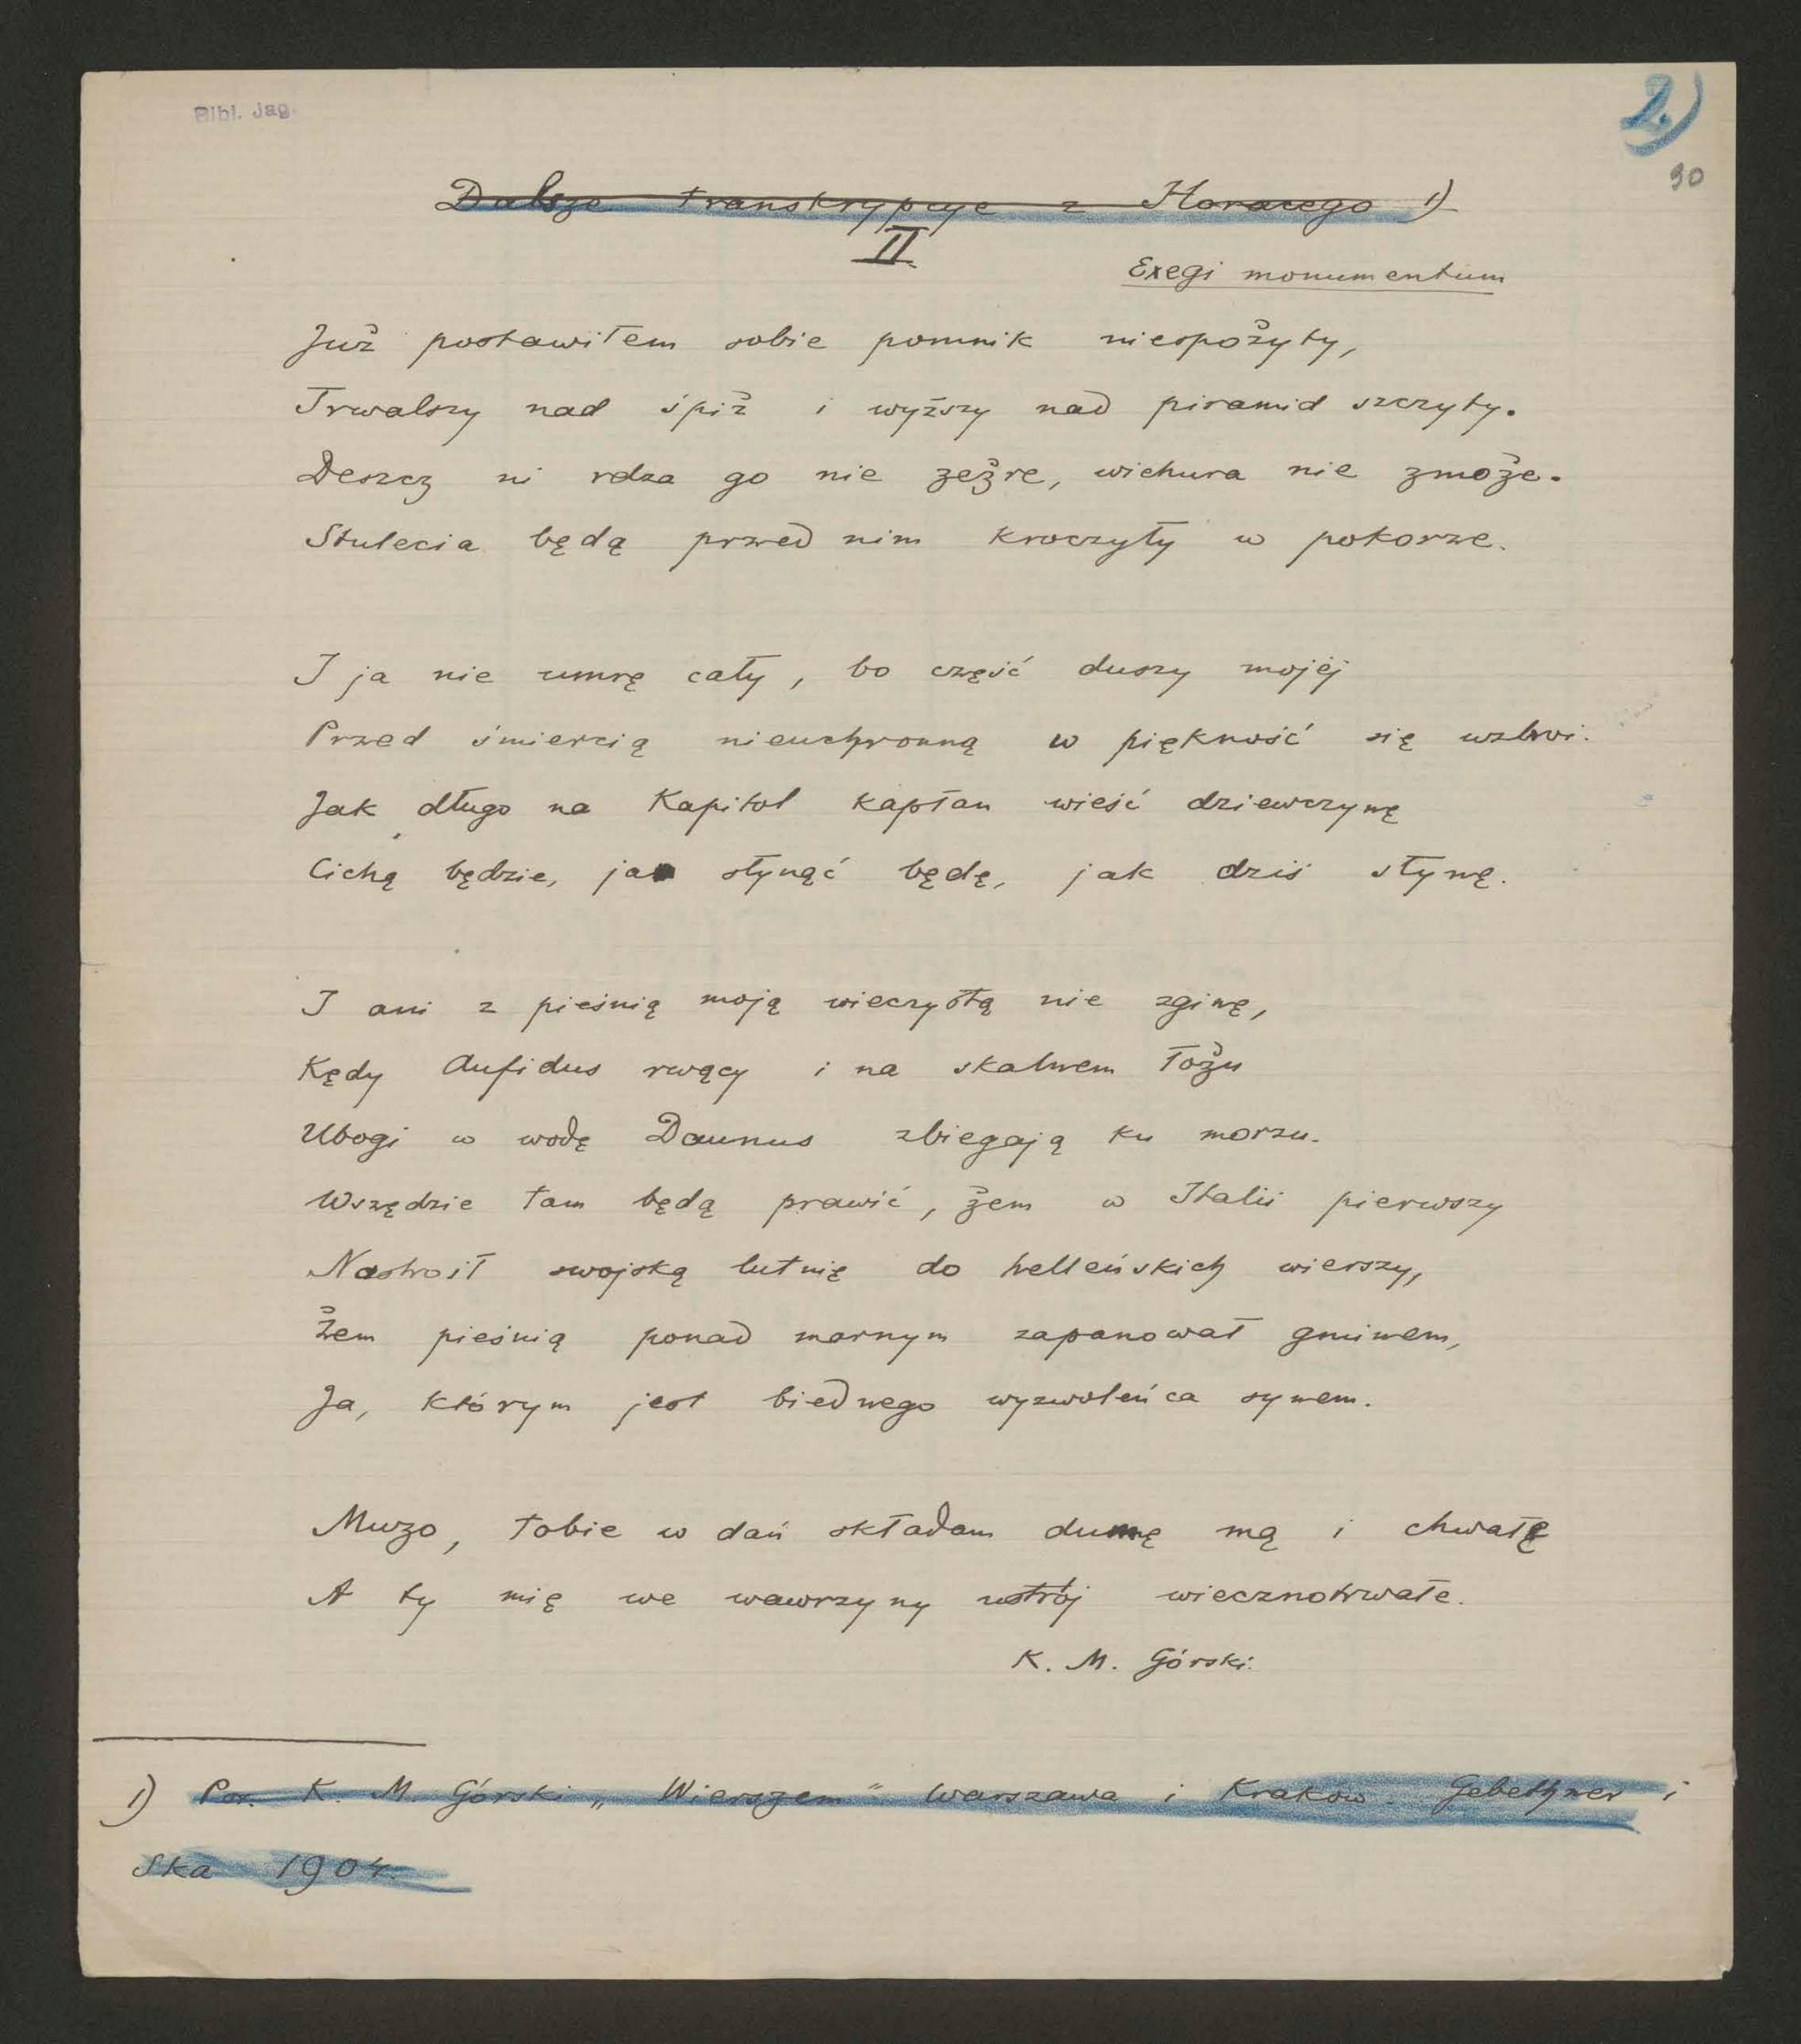 Bibl. Jag.
2.)
90
Dalsze transkrypcye z Horacego 1)
II
Exegi monumentum
Już postawiłem sobie pomnik niespożyty,
Trwalszy nad śpiż i wyższy nad piramid szczyty.
Deszcz ni rdza go nie zeżre, wichura nie zmoże.
Stulecia będą przed nim kroczyły w pokorze.
I ja nie umrę cały, bo część duszy mojéj
Przed śmiercią nieuchronną w piękność się uzbroi.
Jak długo na Kapitol kapłan wieść dziewczynę
Cichą będzie, ja słynąć będę, jak dziś słynę.
I ani z pieśnią moją wieczystą nie zginę,
Kędy Aufidus rwący i na skalnem łożu
Ubogi w wodę Daunus zbiegają ku morzu.
Wszędzie tam będą prawić, żem w Italii pierwszy
Nastroił swojską lutnię do helleńskich wierszy,
Żem pieśnią ponad marnym zapanował gminem,
Ja, którym jest biednego wyzwoleńca synem.
Muzo, tobie w dań składam dumę mą i chwałę
A ty mię we wawrzyny ustrój wiecznotrwałe.
K. M. Górski.
1) Por. K. M. Górski „Wierszem" Warszawa i Kraków. Gebethner i
Ska 1904.